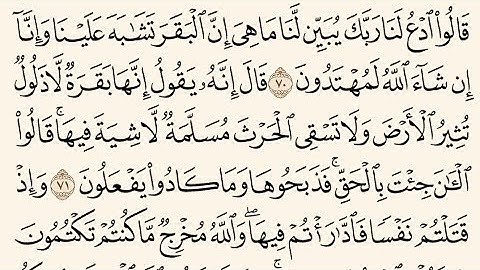 قَالُوا۟ ٱدْعُ لَنَا رَبَّكَ يُبَيِّن لَّنَا مَا هِىَ إِنَّ ٱلْبَقَرَ تَشَـٰبَهَ عَلَيْنَا وَإِنَّآ
إِن شَآءَ ٱللَّهُ لَمُهْتَدُونَ ٧٠ قَالَ إِنَّهُۥ يَقُولُ إِنَّهَا بَقَرَةٌ لَّا ذَلُولٌ
تُثِيرُ ٱلْأَرْضَ وَلَا تَسْقِى ٱلْحَرْثَ مُسَلَّمَةٌ لَّا شِيَةَ فِيهَا ۚ قَالُوا۟
ٱلْـَٔـٰنَ جِئْتَ بِٱلْحَقِّ ۚ فَذَبَحُوهَا وَمَا كَادُوا۟ يَفْعَلُونَ ٧١ وَإِذْ
قَتَلْتُمْ نَفْسًا فَٱدَّٰرَْٰٔتُمْ فِيهَا ۖ وَٱللَّهُ مُخْرِجٌ مَّا كُنتُمْ تَكْتُمُونَ